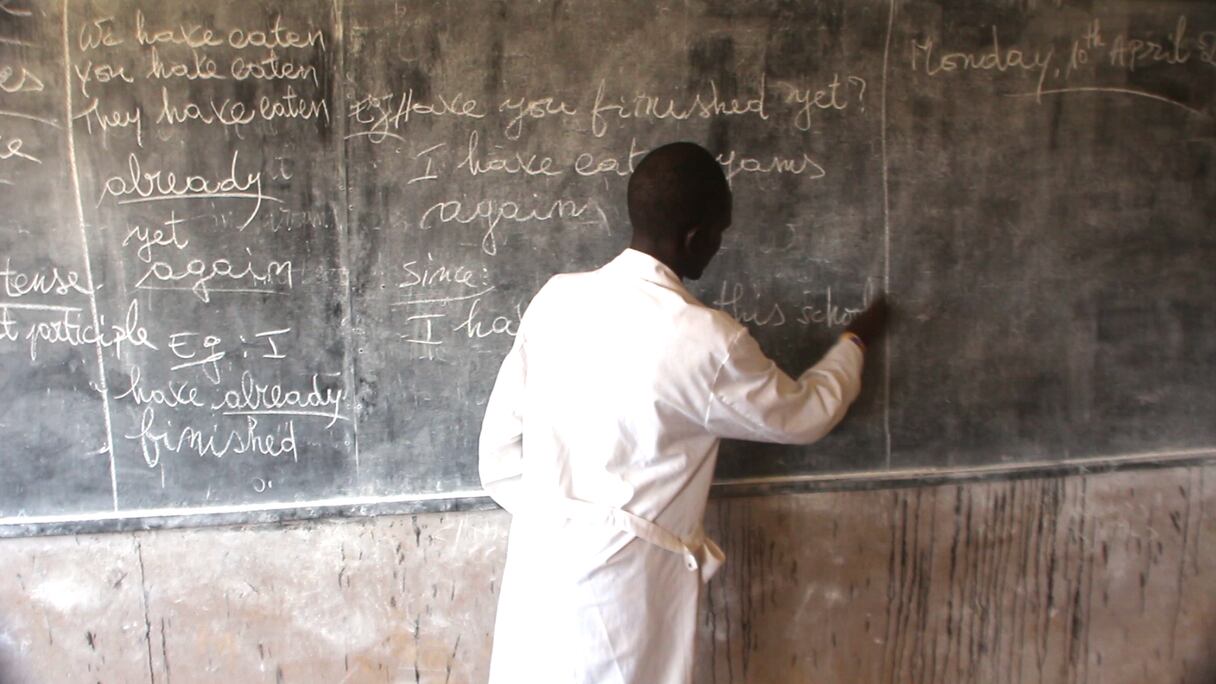 es
We have eaten
You have eaten
They have eaten
already
yet
again
tense
participle
Eg: I
have already
finished
Eg Have you finished yet?
I have yams
again
Since:
I this school
Monday, 10th April